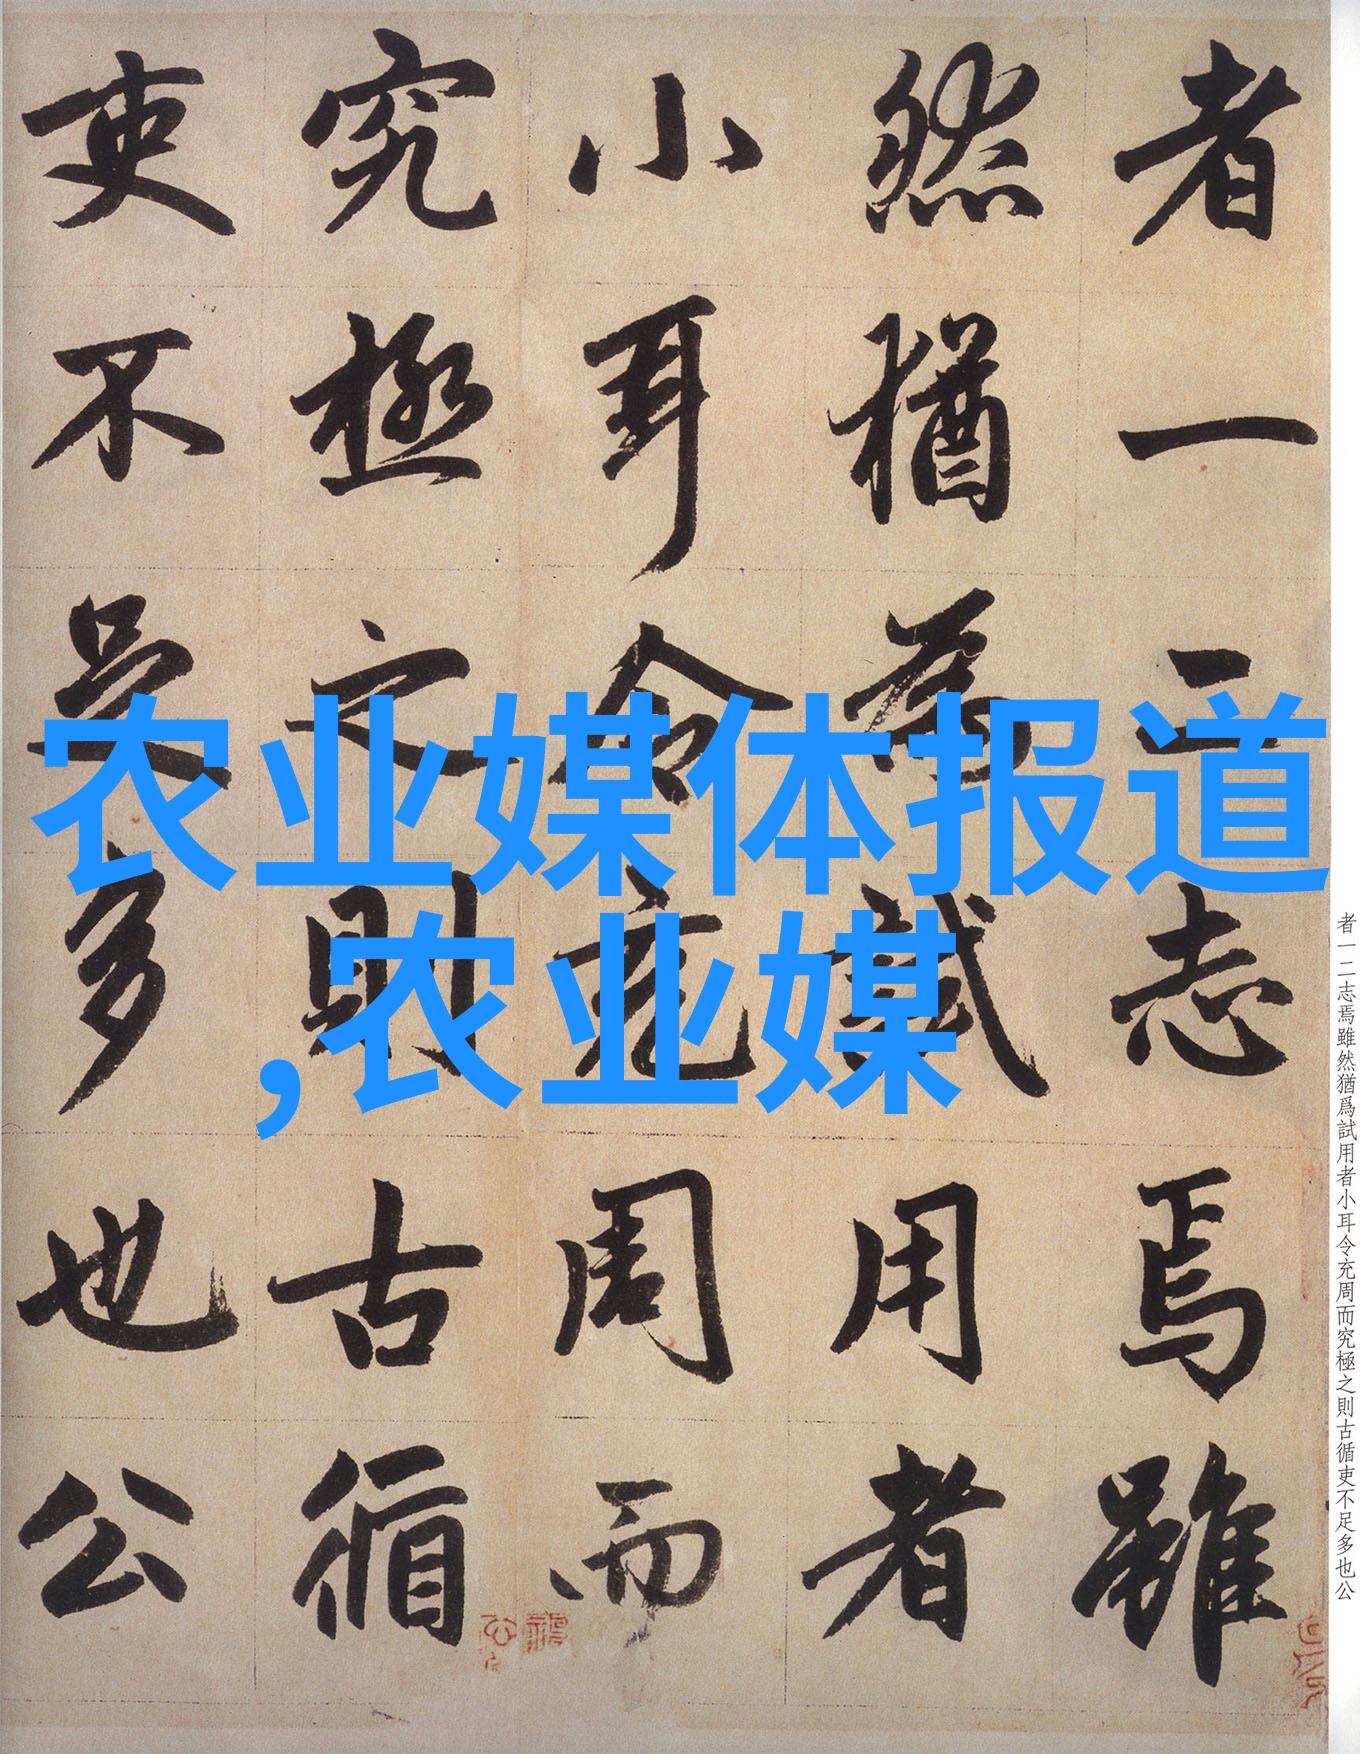 者一二志焉雖
然猶為試用者
小耳令充周而
究極之則古循
吏不足多也公
农业媒体报道
,农业媒
者一二志焉雖然猶爲試用者小耳令充周而究極之則古循吏不足多也公